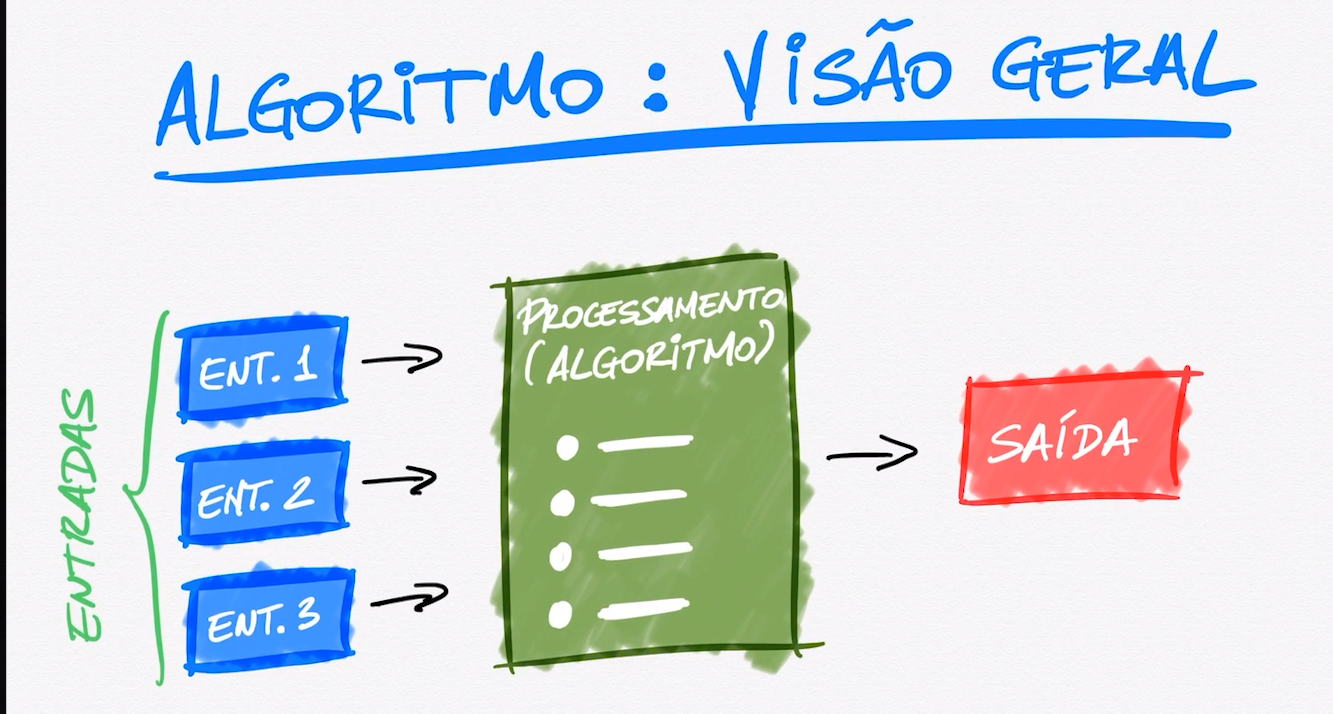 ALGORITMO : VISÃO GERAL
ENTRADAS
ENT. 1
ENT. 2
ENT. 3
PROCESSAMENTO
(ALGORITMO)
SAÍDA